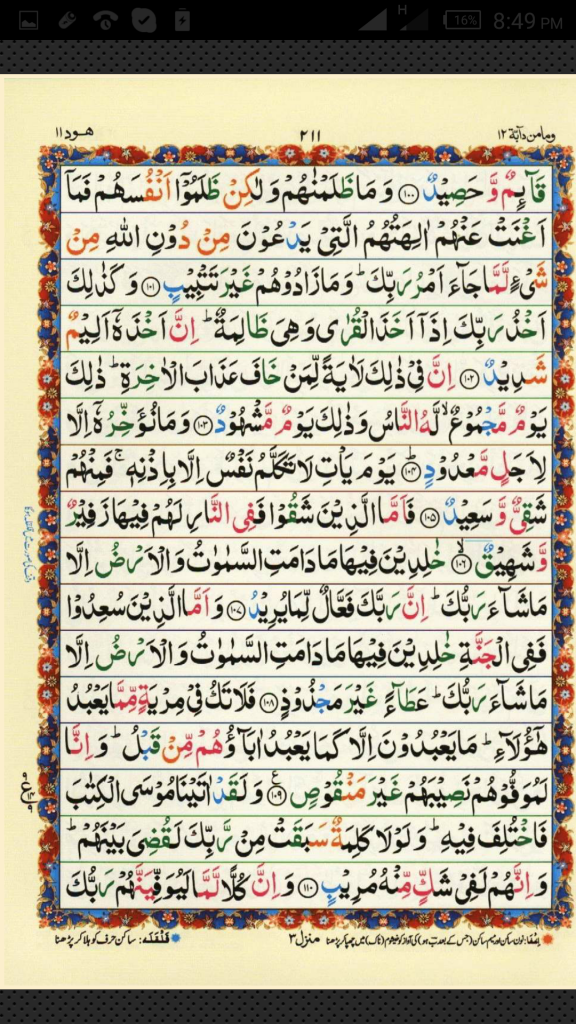 H 16% 8:49 PM
ومامن دآبة ١٢ ٢١١ هود ١١
قَآئِمٌ وَّ حَصِيْدٌ ﴿۱۰۰﴾ وَ مَا ظَلَمْنٰهُمْ وَ لٰكِنْ ظَلَمُوْۤا اَنْفُسَهُمْ فَمَاۤ
اَغْنَتْ عَنْهُمْ اٰلِهَتُهُمُ الَّتِیْ يَدْعُوْنَ مِنْ دُوْنِ اللّٰهِ مِنْ
شَیْءٍ لَّمَّا جَآءَ اَمْرُ رَبِّكَ ؕ وَ مَا زَادُوْهُمْ غَيْرَ تَتْبِيْبٍ ﴿۱۰۱﴾ وَ كَذٰلِكَ
اَخْذُ رَبِّكَ اِذَاۤ اَخَذَ الْقُرٰی وَ هِیَ ظَالِمَةٌ ؕ اِنَّ اَخْذَهٗۤ اَلِيْمٌ
شَدِيْدٌ ﴿۱۰۲﴾ اِنَّ فِیْ ذٰلِكَ لَاٰيَةً لِّمَنْ خَافَ عَذَابَ الْاٰخِرَةِ ؕ ذٰلِكَ
يَوْمٌ مَّجْمُوْعٌ ۙ لَّهُ النَّاسُ وَ ذٰلِكَ يَوْمٌ مَّشْهُوْدٌ ﴿۱۰۳﴾ وَ مَا نُؤَخِّرُهٗۤ اِلَّا
لِاَجَلٍ مَّعْدُوْدٍ ﴿۱۰۴﴾ يَوْمَ يَاْتِ لَا تَكَلَّمُ نَفْسٌ اِلَّا بِاِذْنِهٖ ۚ فَمِنْهُمْ
شَقِیٌّ وَّ سَعِيْدٌ ﴿۱۰۵﴾ فَاَمَّا الَّذِيْنَ شَقُوْا فَفِی النَّارِ لَهُمْ فِيْهَا زَفِيْرٌ
وَّ شَهِيْقٌ ﴿۱۰۶﴾ خٰلِدِيْنَ فِيْهَا مَا دَامَتِ السَّمٰوٰتُ وَ الْاَرْضُ اِلَّا
مَا شَآءَ رَبُّكَ ؕ اِنَّ رَبَّكَ فَعَّالٌ لِّمَا يُرِيْدُ ﴿۱۰۷﴾ وَ اَمَّا الَّذِيْنَ سُعِدُوْا
فَفِی الْجَنَّةِ خٰلِدِيْنَ فِيْهَا مَا دَامَتِ السَّمٰوٰتُ وَ الْاَرْضُ اِلَّا
مَا شَآءَ رَبُّكَ ؕ عَطَآءً غَيْرَ مَجْذُوْذٍ ﴿۱۰۸﴾ فَلَا تَكُ فِیْ مِرْيَةٍ مِّمَّا يَعْبُدُ
هٰۤؤُلَآءِ ؕ مَا يَعْبُدُوْنَ اِلَّا كَمَا يَعْبُدُ اٰبَآؤُهُمْ مِّنْ قَبْلُ ؕ وَ اِنَّا
لَمُوَفُّوْهُمْ نَصِيْبَهُمْ غَيْرَ مَنْقُوْصٍ ﴿۱۰۹﴾ وَ لَقَدْ اٰتَيْنَا مُوْسَی الْكِتٰبَ
فَاخْتُلِفَ فِيْهِ ؕ وَ لَوْ لَا كَلِمَةٌ سَبَقَتْ مِنْ رَّبِّكَ لَقُضِیَ بَيْنَهُمْ ؕ
وَ اِنَّهُمْ لَفِیْ شَكٍّ مِّنْهُ مُرِيْبٍ ﴿۱۱۰﴾ وَ اِنَّ كُلًّا لَّمَّا لَيُوَفِّيَنَّهُمْ رَبُّكَ
اِخفا: نون ساکن اور میم ساکن (جس کے بعد ب ہو) کی آواز کو خیشوم (ناک) میں چھپا کر پڑھنا منزل ٣ قلقله: ساکن حرف کو ہلا کر پڑھنا